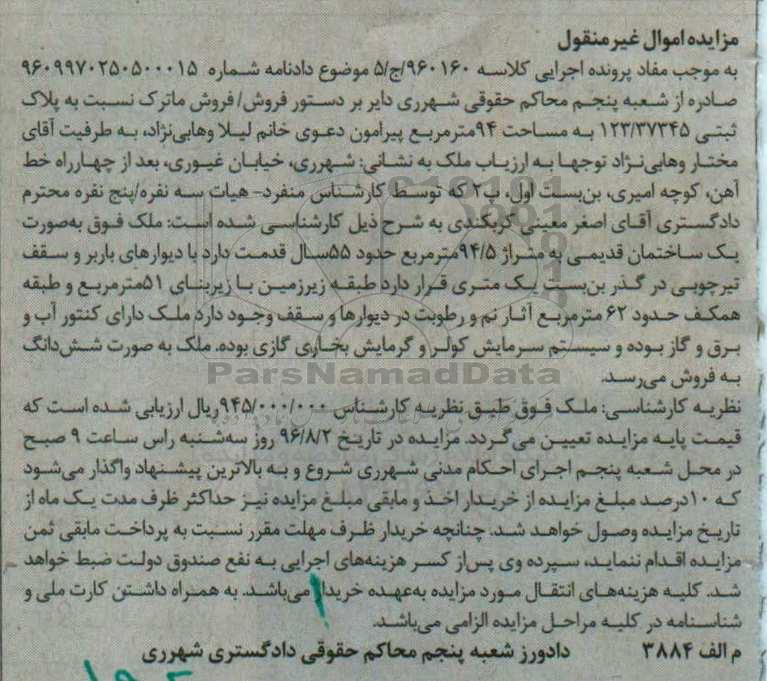 مزایده اموال غیر منقول
به موجب مفاد پرونده اجرایی کلاسه ۹۶۰۱۶۰/ج/۵ موضوع دادنامه شماره ۹۶۰۹۹۷۰۲۵۰۵۰۰۰۱۵
صادره از شعبه پنجم محاکم حقوقی شهرری دایر بر دستور فروش/ فروش ماترک نسبت به پلاک
ثبتی ۱۲۳/۳۷۳۴۵ به مساحت ۹۴مترمربع پیرامون دعوی خانم لیلا وهابی‌نژاد، به طرفیت آقای
مختار وهابی‌نژاد توجها به ارزیاب ملک به نشانی: شهرری، خیابان غیوری، بعد از چهارراه خط
آهن، کوچه امیری، بن‌بست اول، پ۲ که توسط کارشناس منفرد- هیات سه نفره/پنج نفره محترم
دادگستری آقای اصغر معینی کربکندی به شرح ذیل کارشناسی شده است: ملک فوق به‌صورت
یک ساختمان قدیمی به متراژ ۹۴/۵مترمربع حدود ۵۵سال قدمت دارد با دیوارهای باربر و سقف
تیرچوبی در گذر بن‌بست یک متری قرار دارد طبقه زیرزمین با زیربنای ۵۱مترمربع و طبقه
همکف حدود ۶۲ مترمربع آثار نم و رطوبت در دیوارها و سقف وجود دارد ملک دارای کنتور آب و
برق و گاز بوده و سیستم سرمایش کولر و گرمایش بخاری گازی بوده. ملک به صورت شش‌دانگ
به فروش می‌رسد.
ParsNamadData
نظریه کارشناسی: ملک فوق طبق نظریه کارشناس ۹۴۵/۰۰۰/۰۰۰ریال ارزیابی شده است که
قیمت پایه مزایده تعیین می‌گردد. مزایده در تاریخ ۹۶/۸/۲ روز سه‌شنبه راس ساعت ۹ صبح
در محل شعبه پنجم اجرای احکام مدنی شهرری شروع و به بالاترین پیشنهاد واگذار می‌شود
که ۱۰درصد مبلغ مزایده از خریدار اخذ و مابقی مبلغ مزایده نیز حداکثر ظرف مدت یک ماه از
تاریخ مزایده وصول خواهد شد. چنانچه خریدار ظرف مهلت مقرر نسبت به پرداخت مابقی ثمن
مزایده اقدام ننماید، سپرده وی پس‌از کسر هزینه‌های اجرایی به نفع صندوق دولت ضبط خواهد
شد. کلیه هزینه‌های انتقال مورد مزایده به‌عهده خریدار می‌باشد. به همراه داشتن کارت ملی و
شناسنامه در کلیه مراحل مزایده الزامی می‌باشد.
م الف ۳۸۸۴ دادورز شعبه پنجم محاکم حقوقی دادگستری شهرری